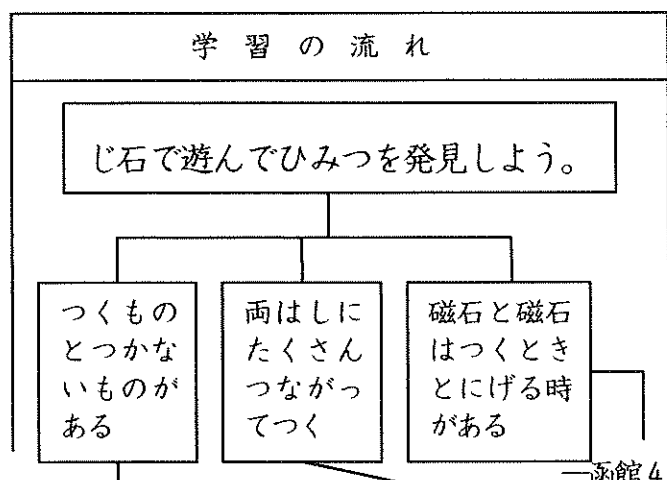 学習の流れ
じ石で遊んでひみつを発見しよう。
つくもの
とつかな
いものが
ある
両はしに
たくさん
つながっ
てつく
磁石と磁石
はつくとき
とにげる時
がある
—函館4